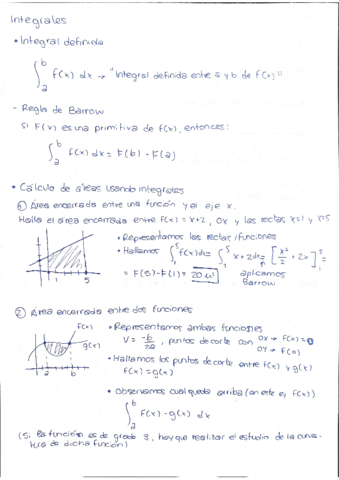 Integrales
• Integral definida
∫ₐᵇ f(x) dx → "Integral definida entre a y b de f(x)"
- Regla de Barrow
Si F(x) es una primitiva de f(x), entonces:
∫ₐᵇ f(x) dx = F(b) - F(a)
• Cálculo de áreas usando integrales
① Área encerrada entre una función y el eje x.
Halla el área encerrada entre f(x) = x+2, Ox y las rectas x=1 y x=5
• Representamos las rectas/funciones
• Hallamos ∫₁⁵ f(x) dx = ∫₁⁵ x+2 dx = [x²/2 + 2x]₁⁵ =
= F(5) - F(1) = 20 u²
aplicamos
Barrow
1
5
② Área encerrada entre dos funciones
• Representamos ambas funciones
V = -b/2a, puntos de corte con OX → f(x)=0
OY → f(0)
• Hallamos los puntos de corte entre f(x) y g(x)
f(x) = g(x)
• Observamos cual queda arriba (en este ej f(x))
∫ₐᵇ f(x) - g(x) dx
f(x)
g(x)
a
b
(Si la función es de grado 3, hay que realizar el estudio de la curva-
tura de dicha función)